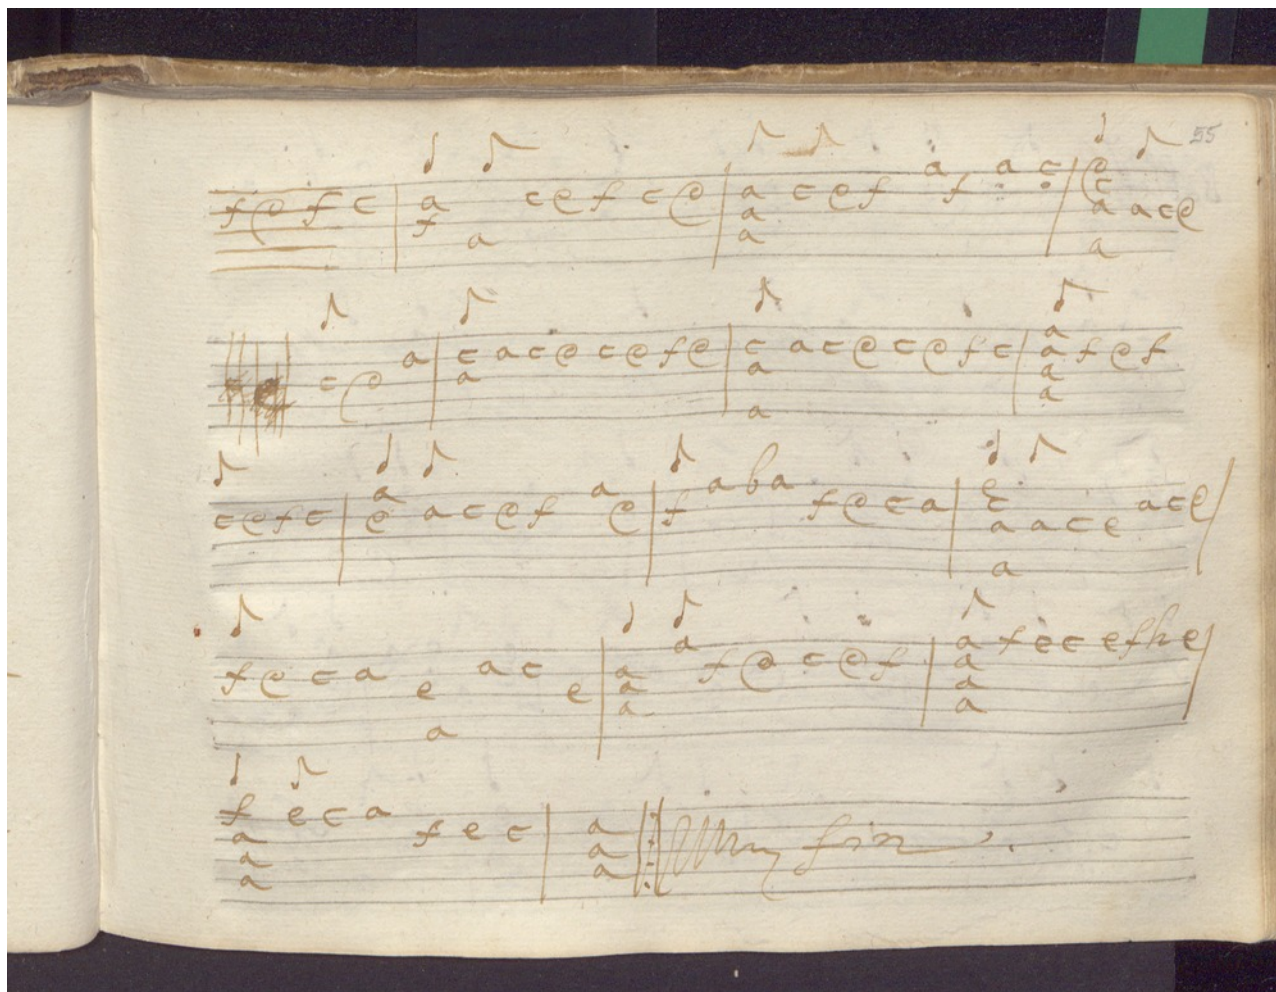 55
f e f c a f a c e f c e a a a c e f a f a c e c a a a c e
c e a c a a c e c e f e c a a a c e c e f c a a a a f e f
c e f c a e a c e f a e f a b a f e c a e c a a a c e a c e
f e c a e a a c e a a a a f e c e f a a a a f e c e f h e
f a a a e c a f e c a a a fin